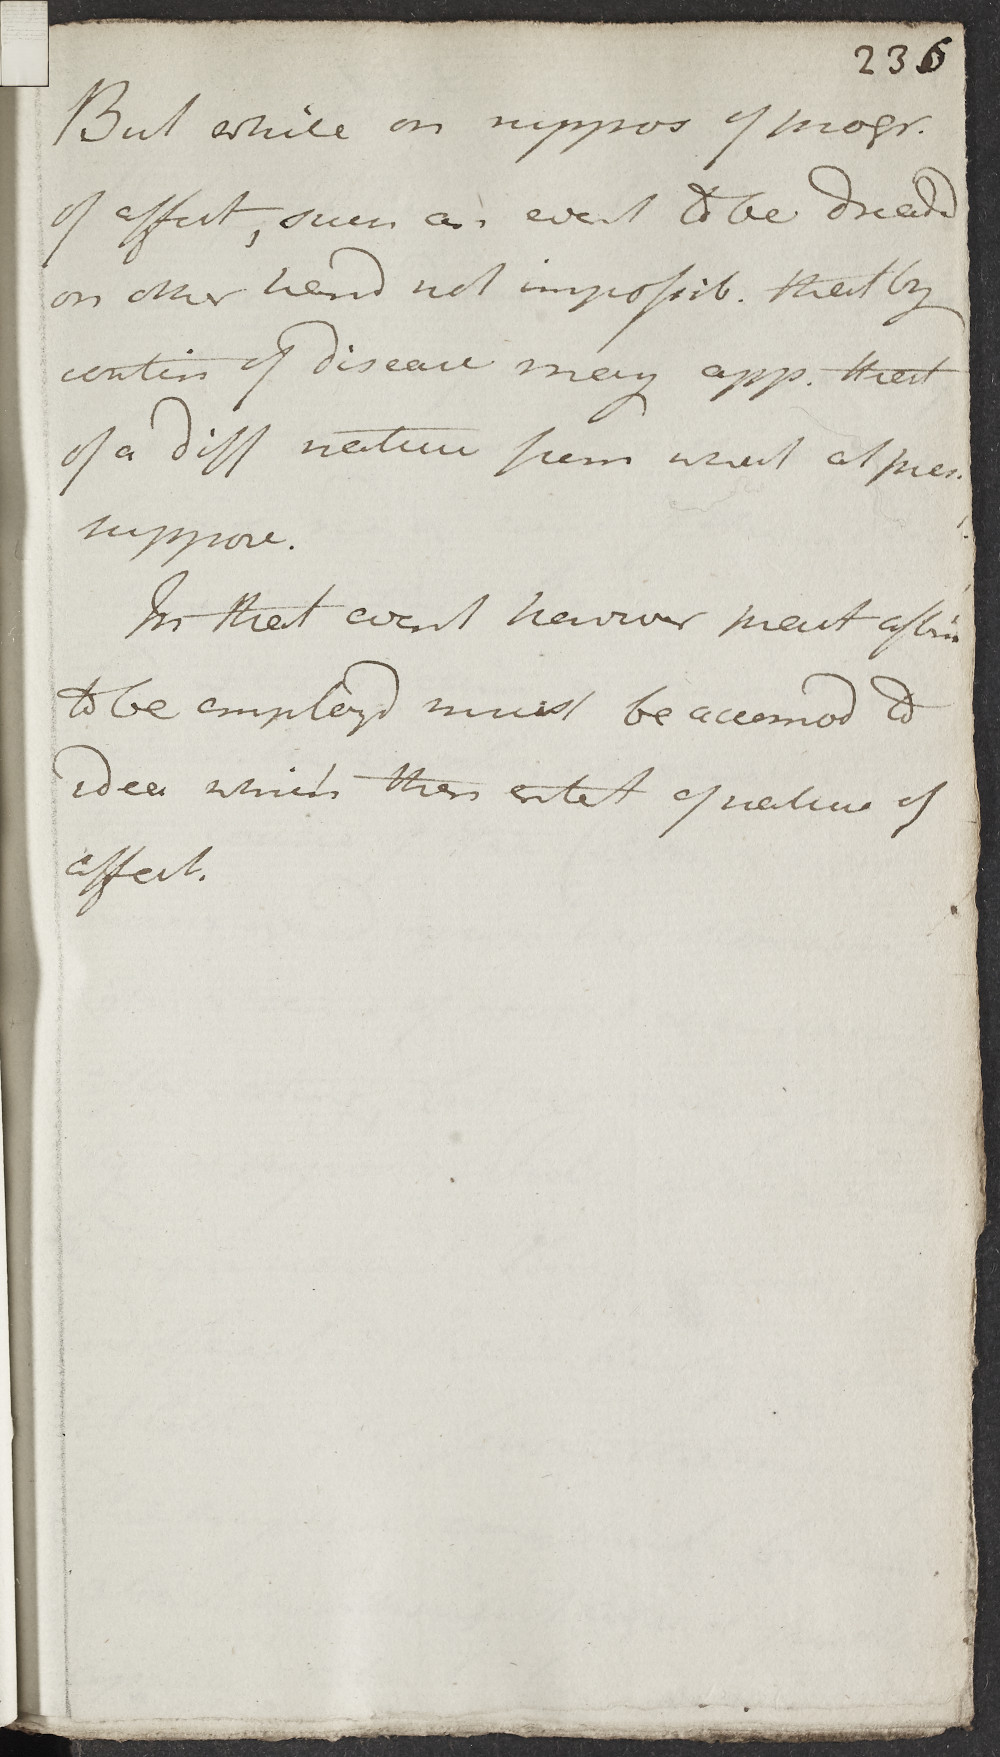 236
But while on suppos of progr.
of affect, such an event to be dreadd
on other hand not impossib. that by
contin of disease may app. that
of a diff nature from what at pres.
suppose.
In that event however
to be employd must be accomod to
idea which then entert of nature of
affect.